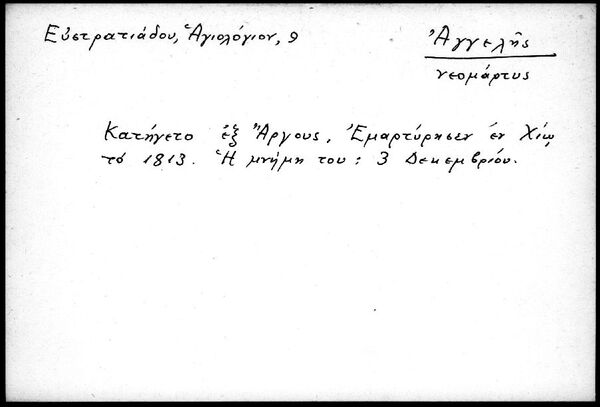 Εὐστρατιάδου, Ἁγιολόγιον, 9
Ἀγγελῆς
νεομάρτυς
Κατήγετο ἐξ Ἄργους. Ἐμαρτύρησεν ἐν Χίῳ
τό 1813. Ἡ μνήμη του: 3 Δεκεμβρίου.